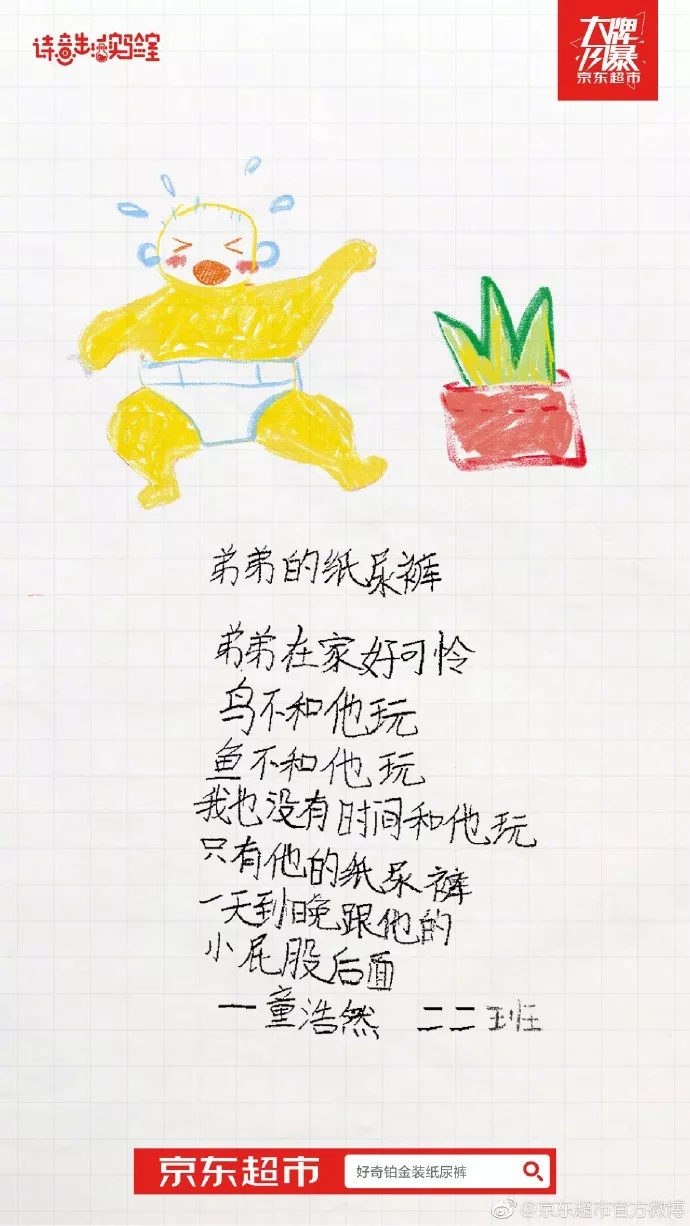 诗意生活实验室
大牌
风暴
京东超市
弟弟的纸尿裤
弟弟在家好可怜
鸟不和他玩
鱼不和他玩
我也没有时间和他玩
只有他的纸尿裤
一天到晚跟他的
小屁股后面
一童浩然 二二班
京东超市 好奇铂金装纸尿裤
@京东超市官方微博